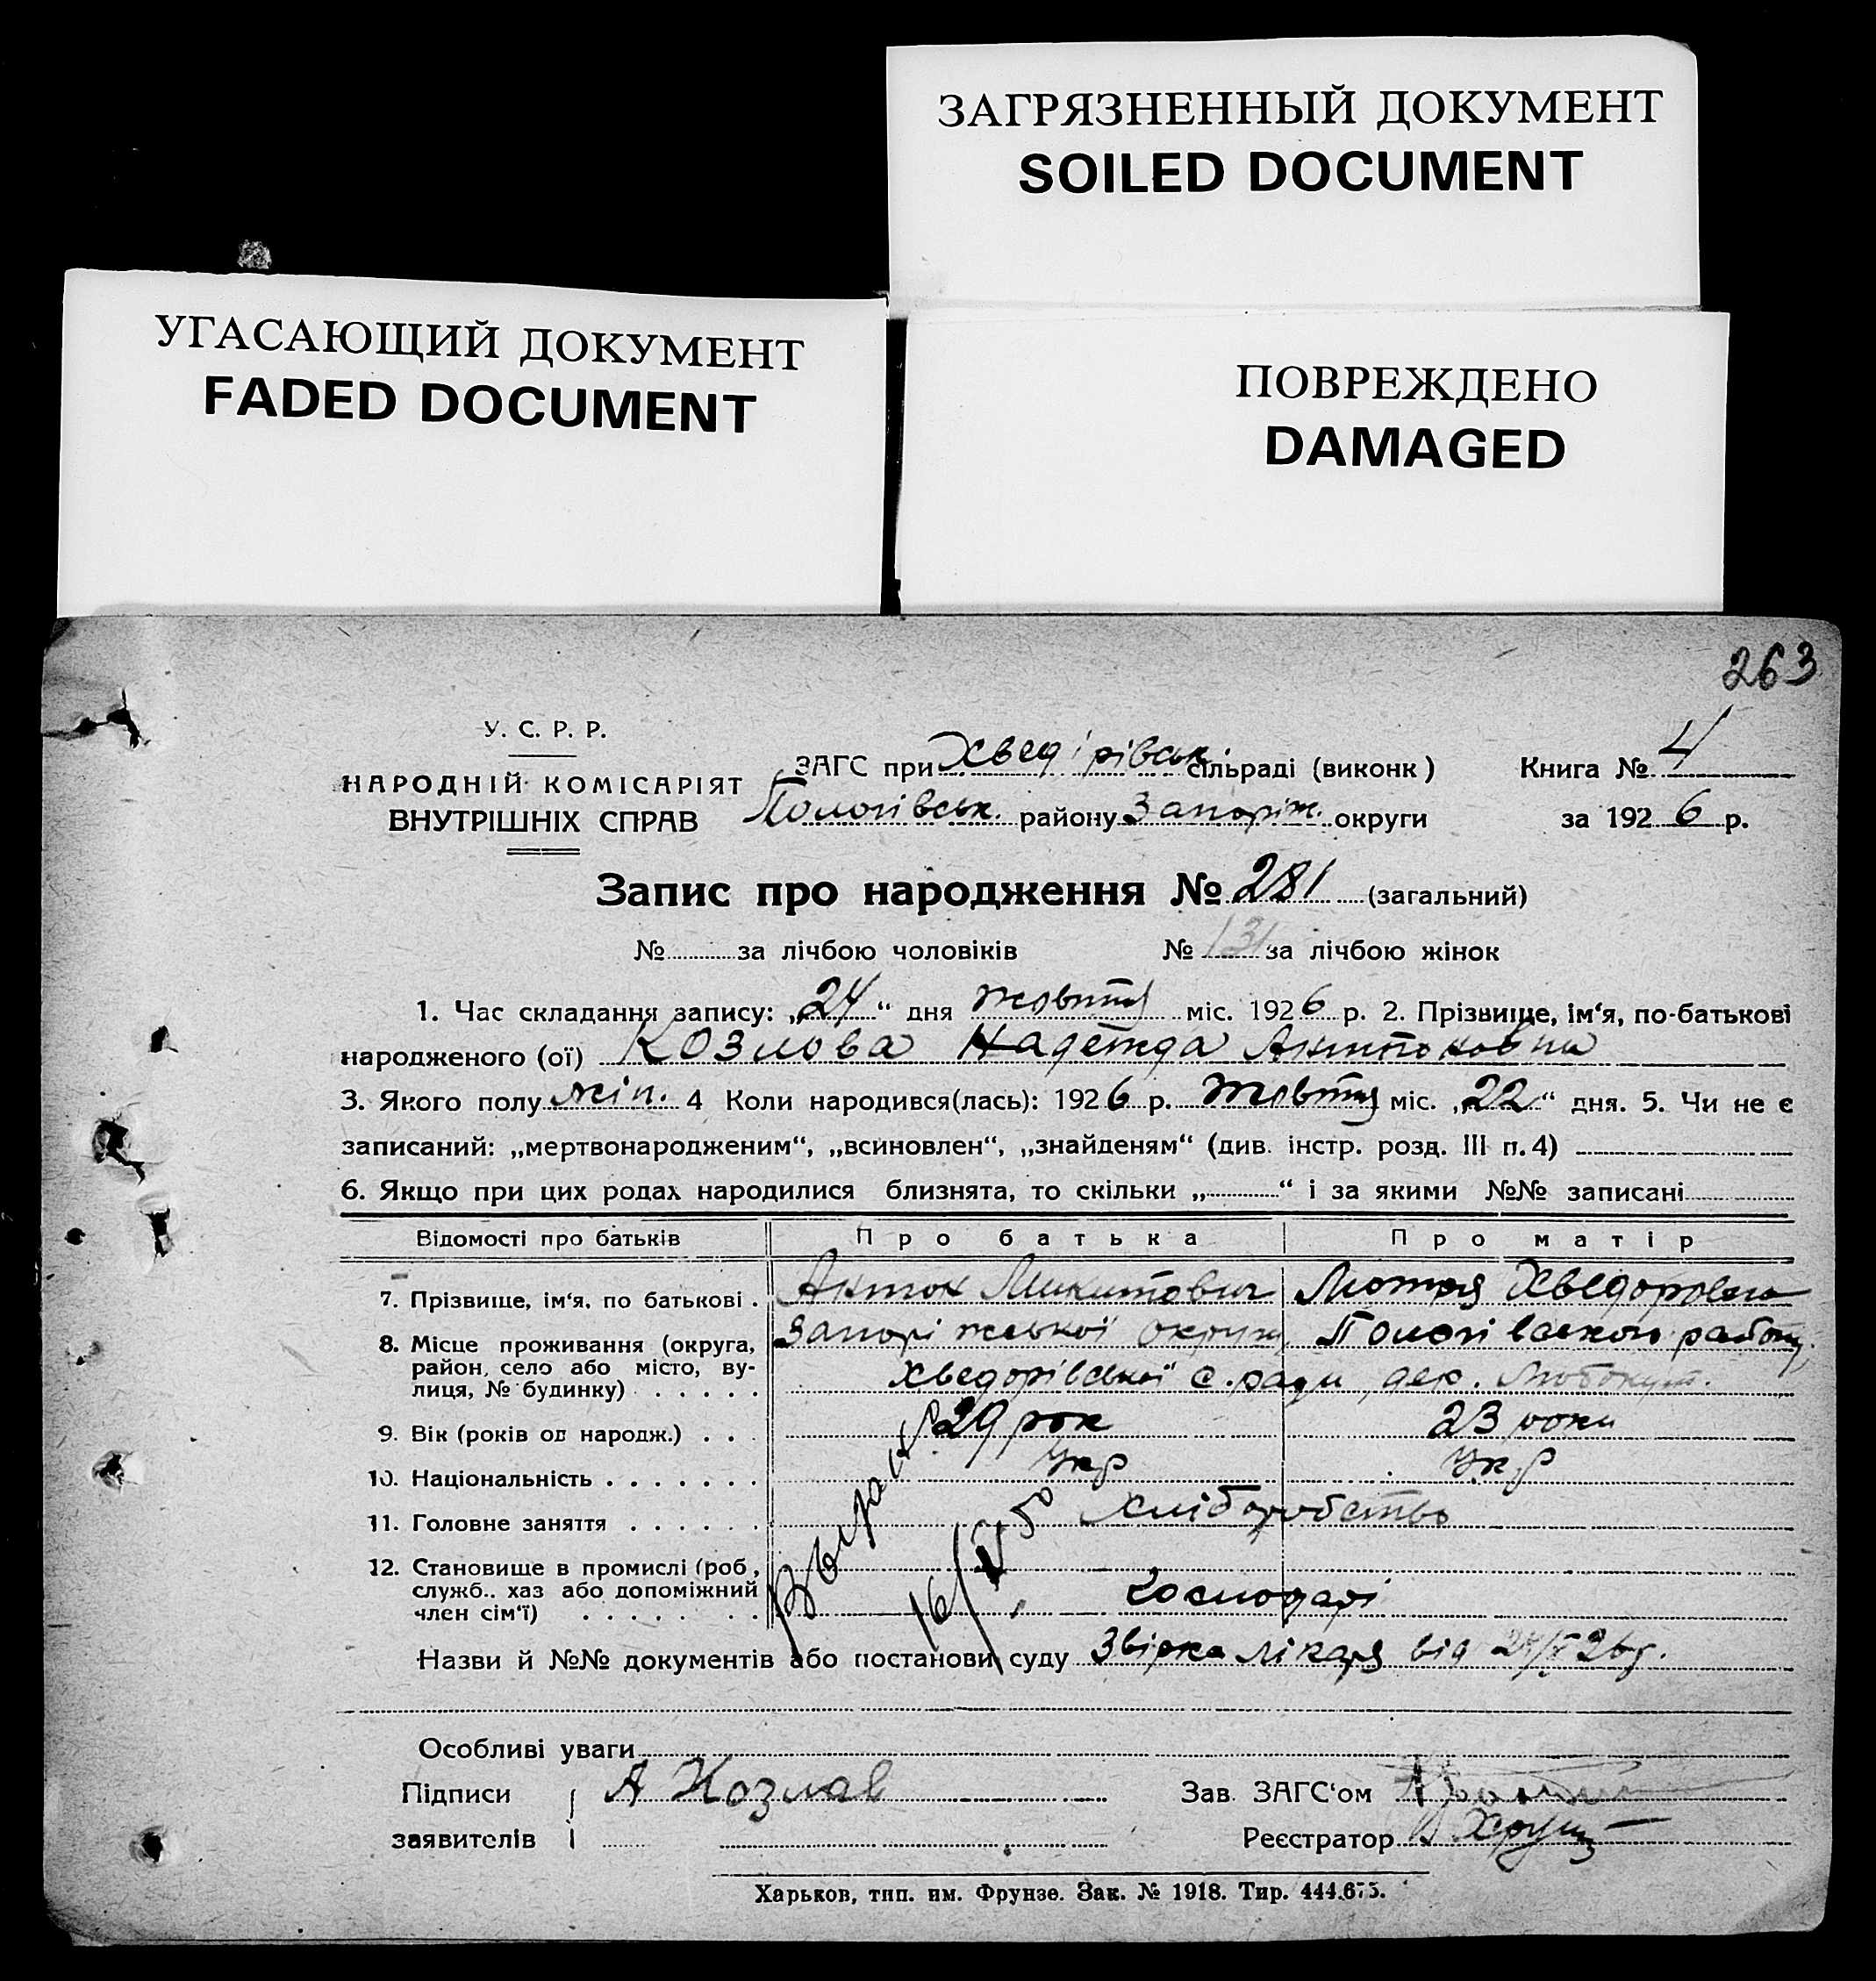 ЗАГРЯЗНЕННЫЙ ДОКУМЕНТ
SOILED DOCUMENT
УГАСАЮЩИЙ ДОКУМЕНТ
FADED DOCUMENT
ПОВРЕЖДЕНО
DAMAGED
263
У. С. Р. Р.
НАРОДНІЙ КОМІСАРІЯТ
ВНУТРІШНІХ СПРАВ
ЗАГС при Хведірівськ сільраді (виконк) Книга № 4
Пологівськ. району Запоріж. округи за 1926 р.
Запис про народження № 281 (загальний)
№ за лічбою чоловіків № 131 за лічбою жінок
1. Час складання запису: „24“ дня жовтня міс. 1926 р. 2. Прізвище, ім‘я, по-батькові
народженого (ої) Козлова Надежда Антоновна
3. Якого полу жін. 4 Коли народився(лась): 1926 р. жовтня міс. „22“ дня. 5. Чи не є
записаний: „мертвонародженим“, „всиновлен“, „знайденям“ (див. інстр. розд. III п. 4)
6. Якщо при цих родах народилися близнята, то скільки „ “ і за якими №№ записані
Відомості про батьків Про батька Про матір
7. Прізвище, ім‘я, по батькові . Антон Микитович Мотря Хведоровна
8. Місце проживання (округа, Запоріжської округи, Пологівського району,
район, село або місто, ву- Хведорівської с. ради, дер.
лиця, № будинку) . . . . .
9. Вік (років од народж.) . . . 29 рок 23 роки
10. Національність . . . . . . . Укр Укр
11. Головне заняття . . . . . . Хліборобство
12. Становище в промислі (роб,
служб.. хаз або допоміжний
член сім‘ї) . . . . . . . . Господарі
16/V 50
Назви й №№ документів або постанови суду лікаря від
Особливі уваги
Підписи А Козлов Зав. ЗАГС‘ом
заявителів Реєстратор
Харьков, тип. им. Фрунзе. Зак. № 1918. Тир. 444.675.